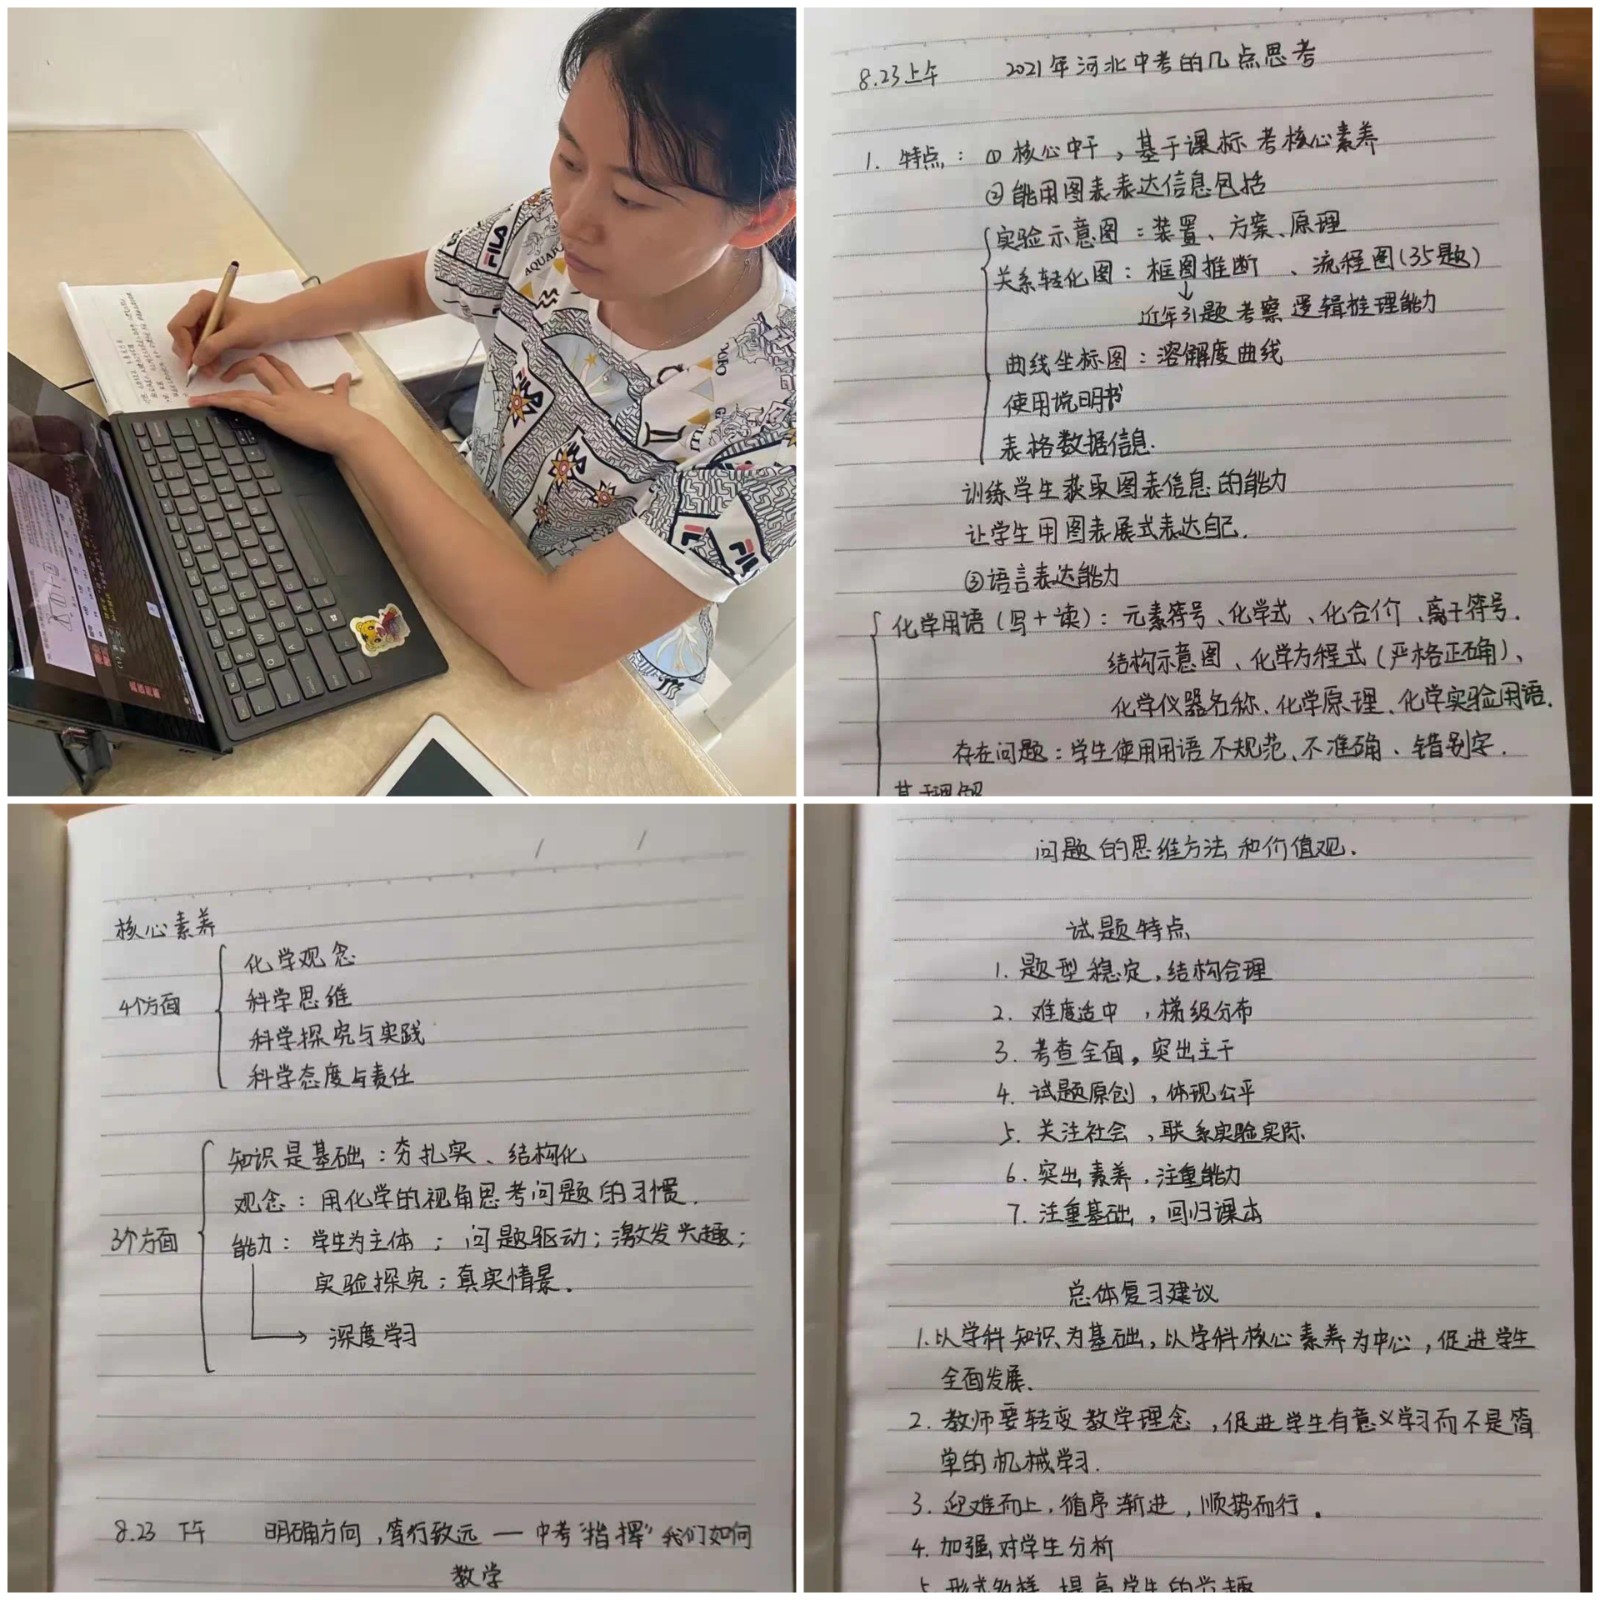 FILA
FILA
FILA
8.23上午 2021年河北中考的几点思考
1. 特点：①核心中干，基于课标 考核心素养
②能用图表表达信息包括
实验示意图：装置、方案、原理
关系转化图：框图推断、流程图(35题)
近年引题考察逻辑推理能力
曲线坐标图：溶解度曲线
使用说明书
表格数据信息.
训练学生获取图表信息的能力
让学生用图表展式表达自己.
③语言表达能力
化学用语(写+读)：元素符号、化学式、化合价、离子符号.
结构示意图、化学方程式(严格正确)、
化学仪器名称、化学原理、化学实验用语.
存在问题：学生使用用语不规范、不准确、错别字.
核心素养
4个方面
化学观念
科学思维
科学探究与实践
科学态度与责任
3个方面
知识是基础：夯扎实、结构化
观念：用化学的视角思考问题的习惯.
能力：学生为主体；问题驱动；激发兴趣；
实验探究；真实情景.
深度学习
8.23 下午 明确方向，笃行致远 — 中考"指挥"我们如何
教学
问题的思维方法和价值观.
试题特点
1. 题型稳定，结构合理
2. 难度适中，梯级分布
3. 考查全面，突出主干
4. 试题原创，体现公平
5. 关注社会，联系实验实际
6. 突出素养，注重能力
7. 注重基础，回归课本
总体复习建议
1.以学科知识为基础，以学科核心素养为中心，促进学生
全面发展.
2. 教师要转变教学理念，促进学生有意义学习而不是简
单的机械学习.
3. 迎难而上，循序渐进，顺势而行。
4. 加强对学生分析
5. 形式多样 提高学生的兴趣